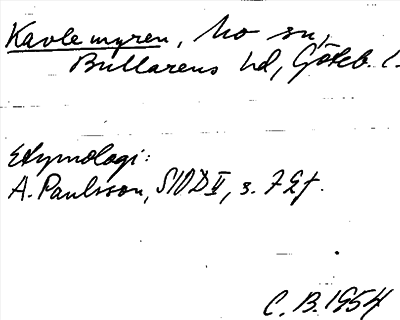 Kavlemyren, Mo sn,
Bullarens hd, Göteb. l.
Etymologi:
A. Paulsson, SIOD V, s. 72f.
C. B. 1954